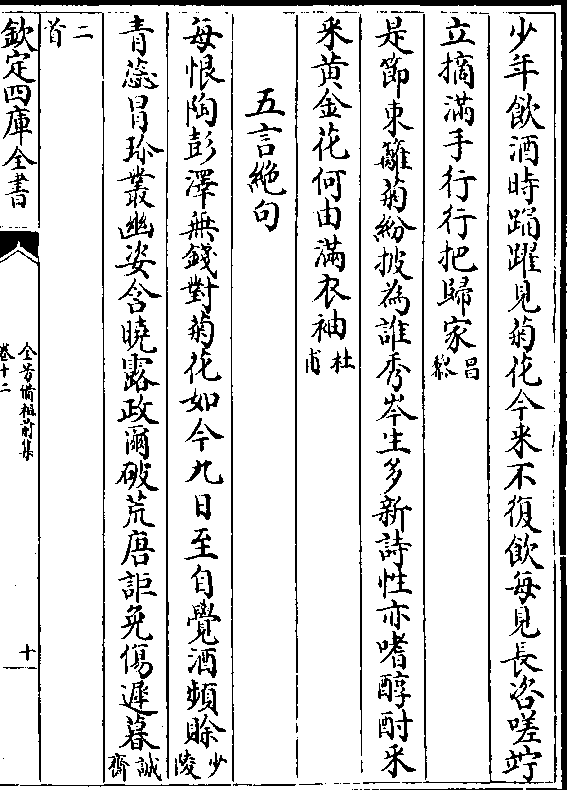 少年飲酒時踊躍見菊花今来不復飲每見長咨嗟竚
立摘滿手行行把歸家昌黎
是節東籬菊紛披為誰秀岑生多新詩性亦嗜醇酎采
采黄金花何由滿衣袖杜甫
五言絶句
每恨陶彭澤無錢對菊花如今九日至自覺酒頻賖少陵
青蕊冒珍叢幽姿含曉露政爾破荒唐詎免傷遲暮誠齋
二首
欽定四庫全書
全芳備祖前集
卷十二
十